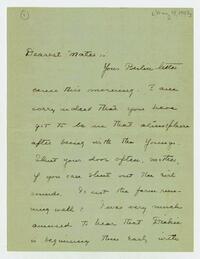 ①
Dearest Mater:
Your Berlin letter
came this morning. I am
sorry indeed that you have
got to be in that atmosphere
after being with the Youngs.
Shut your door often, mother,
if you can shut out the evil
sounds. Is not the farm run-
ning well? I was very much
amused to hear that
is beginning thus early with